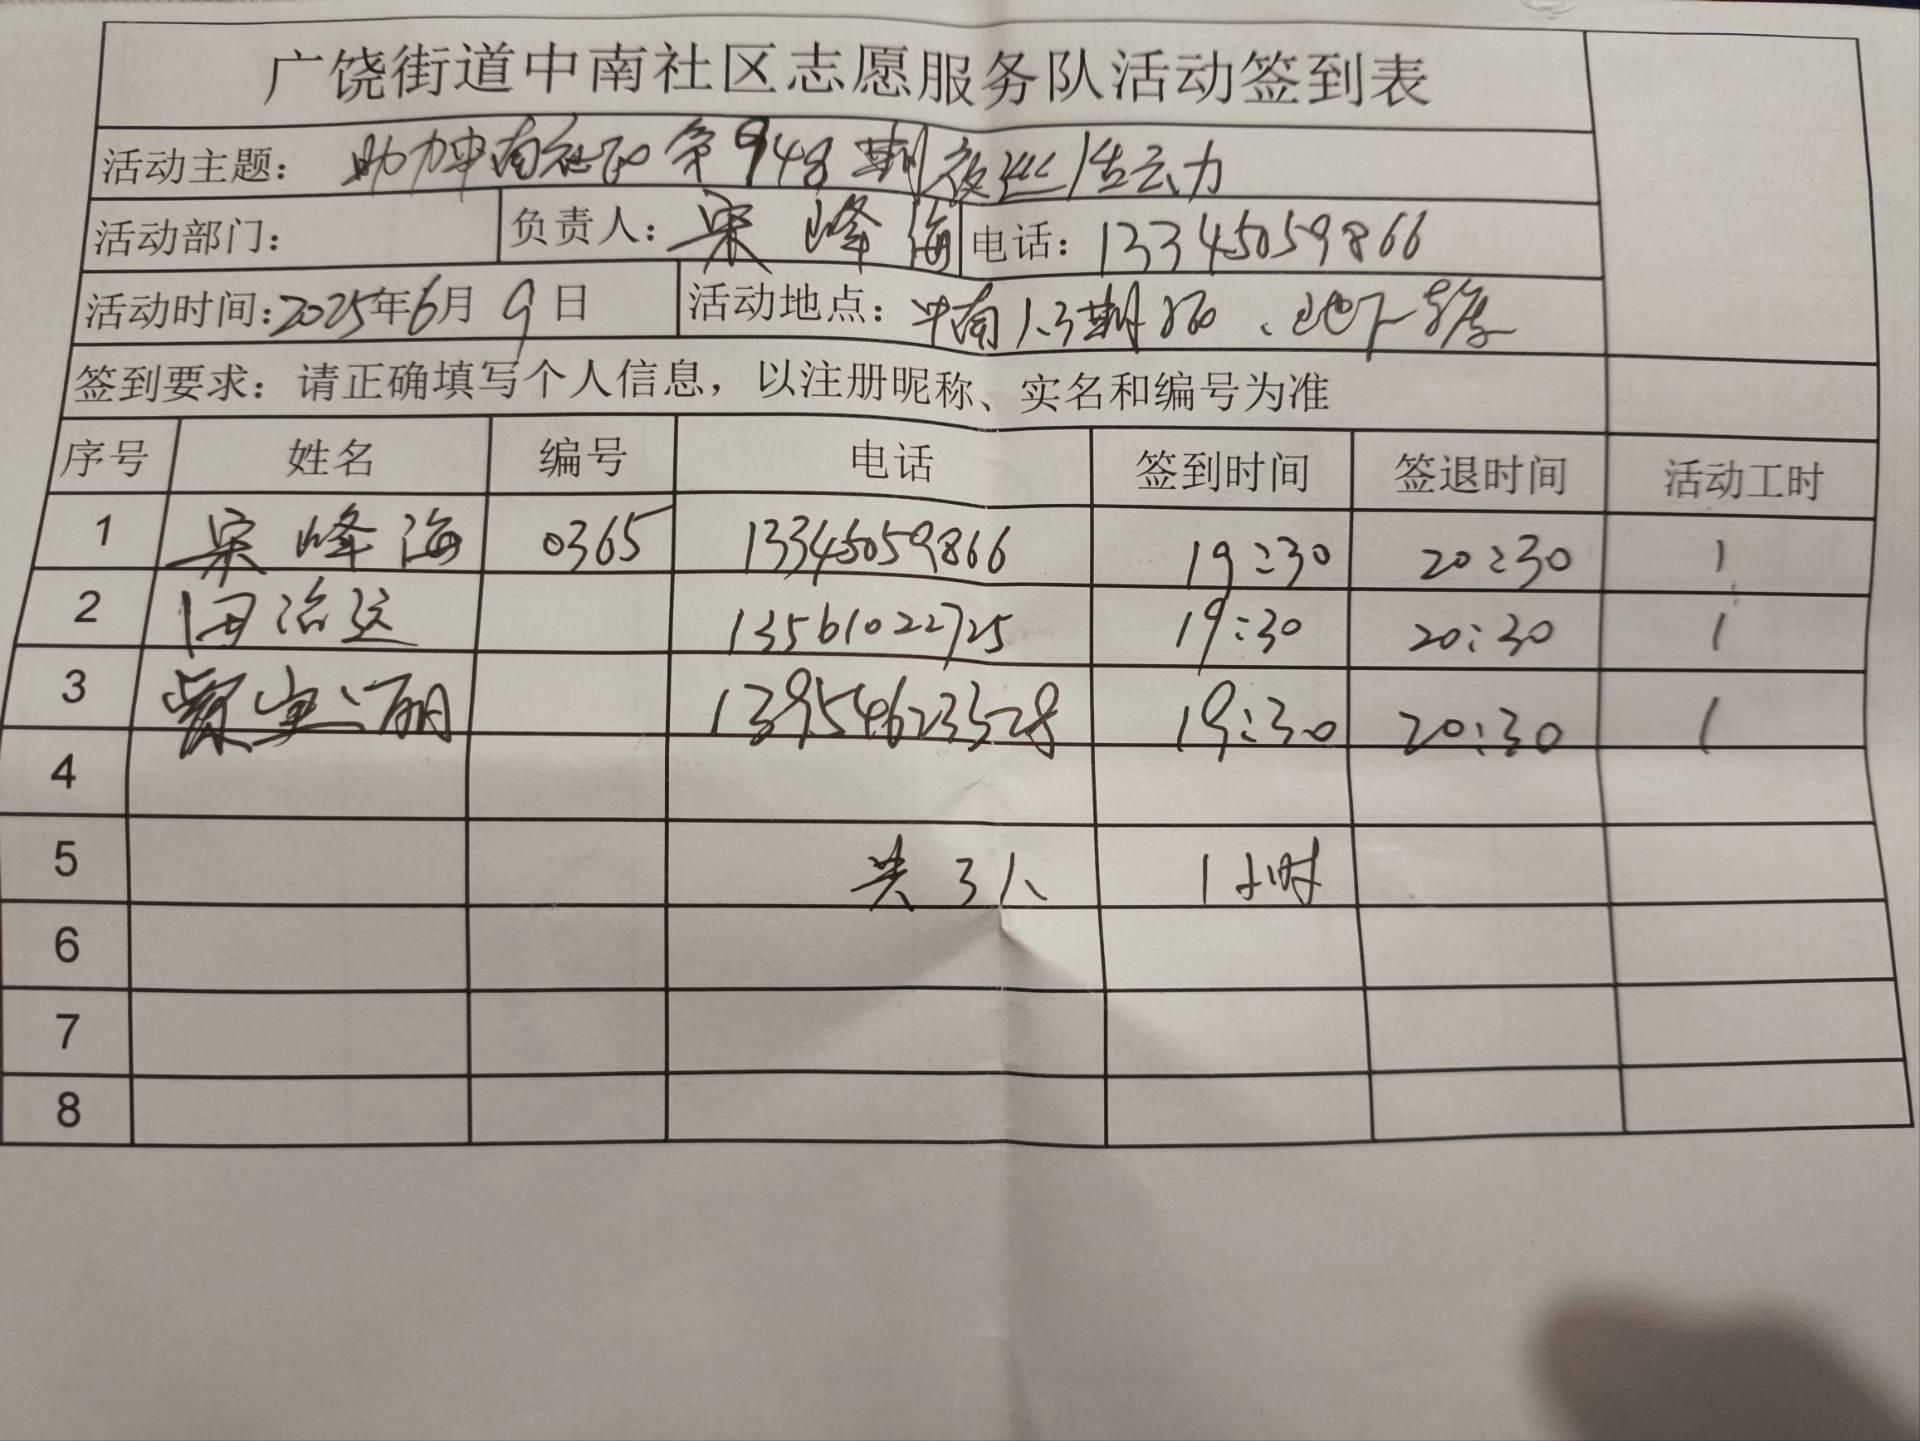 广饶街道中南社区志愿服务队活动签到表
活动主题： 助力中南社区第948期夜巡活动
活动部门： 负责人：宋峰海 电话：13345059866
活动时间：2025年6月9日 活动地点：中南1.3期 、地下车库
签到要求：请正确填写个人信息，以注册昵称、实名和编号为准
序号 姓名 编号 电话 签到时间 签退时间 活动工时
1 宋峰海 0365 13345059866 19:30 20:30 1
2 田治运 13561022725 19:30 20:30 1
3 丽 13954623528 19:30 20:30 1
4
5 共3人 1小时
6
7
8